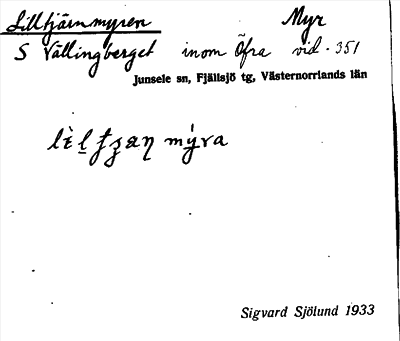 Lilltjärnmyren Myr
S Vällingberget inom Öfra vid. 351
Junsele sn, Fjällsjö tg, Västernorrlands län
Sigvard Sjölund 1933